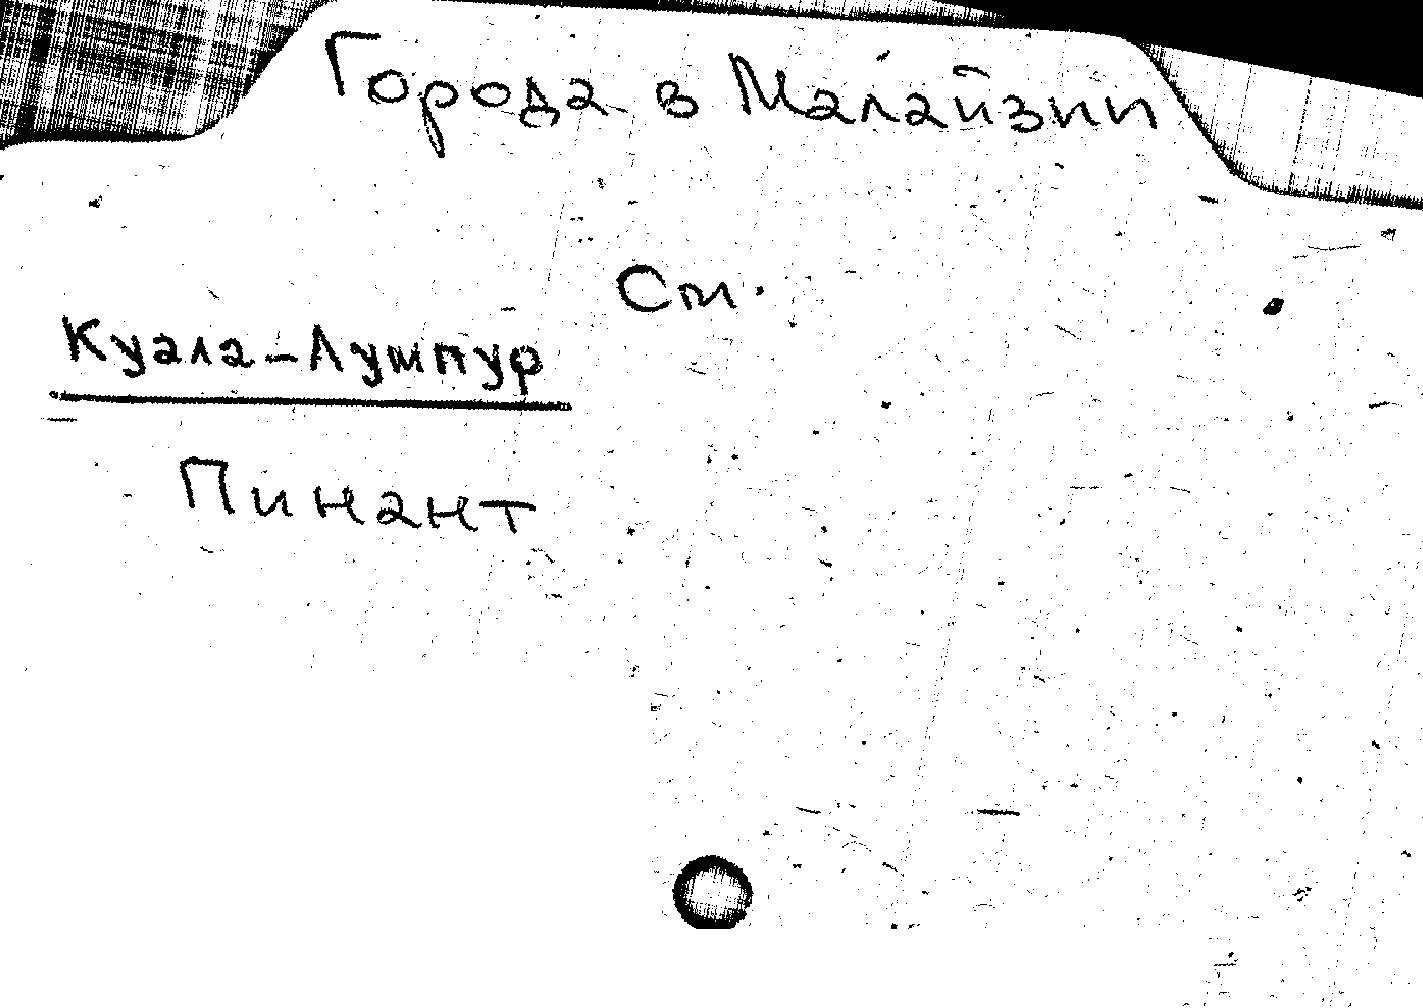 Города в Малайзии
Ст.
Куала-Лумпур
Пинант